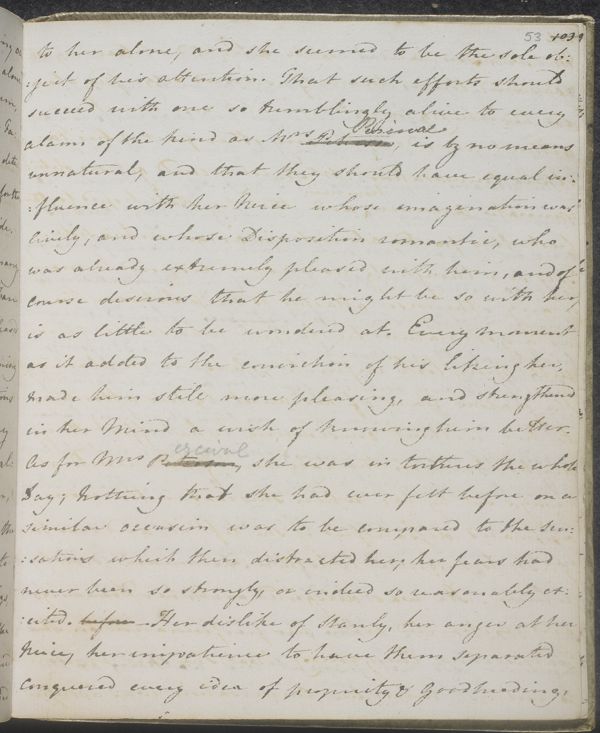 53 1039
to her alone, and she seemed to be the sole ob:
:ject of his attention. That such efforts should
succeed with one so tremblingly alive to every
Percival
alarm of the kind as Mrs Peterson, is by no means
unnatural, and that they should have equal in:
:fluence with her Neice whose imagination was
lively, and whose Disposition romantic, who
was already extremely pleased with him, and of
course desirous that he might be so with her,
is as little to be wondered at. Every moment
as it added to the conviction of his liking her,
made him still more pleasing, and strengthened
in her Mind a wish of knowing him better.
ercival
As for Mrs Peterson, she was in tortures the whole
Day; Nothing that she had ever felt before on a
similar occasion was to be compared to the sen:
:sations which then distracted her; her fears had
never been so strongly, or indeed so reasonably ex:
:cited. before Her dislike of Stanly, her anger at her
Neice, her impatience to have them separated
conquered every idea of propriety & Goodbreeding,